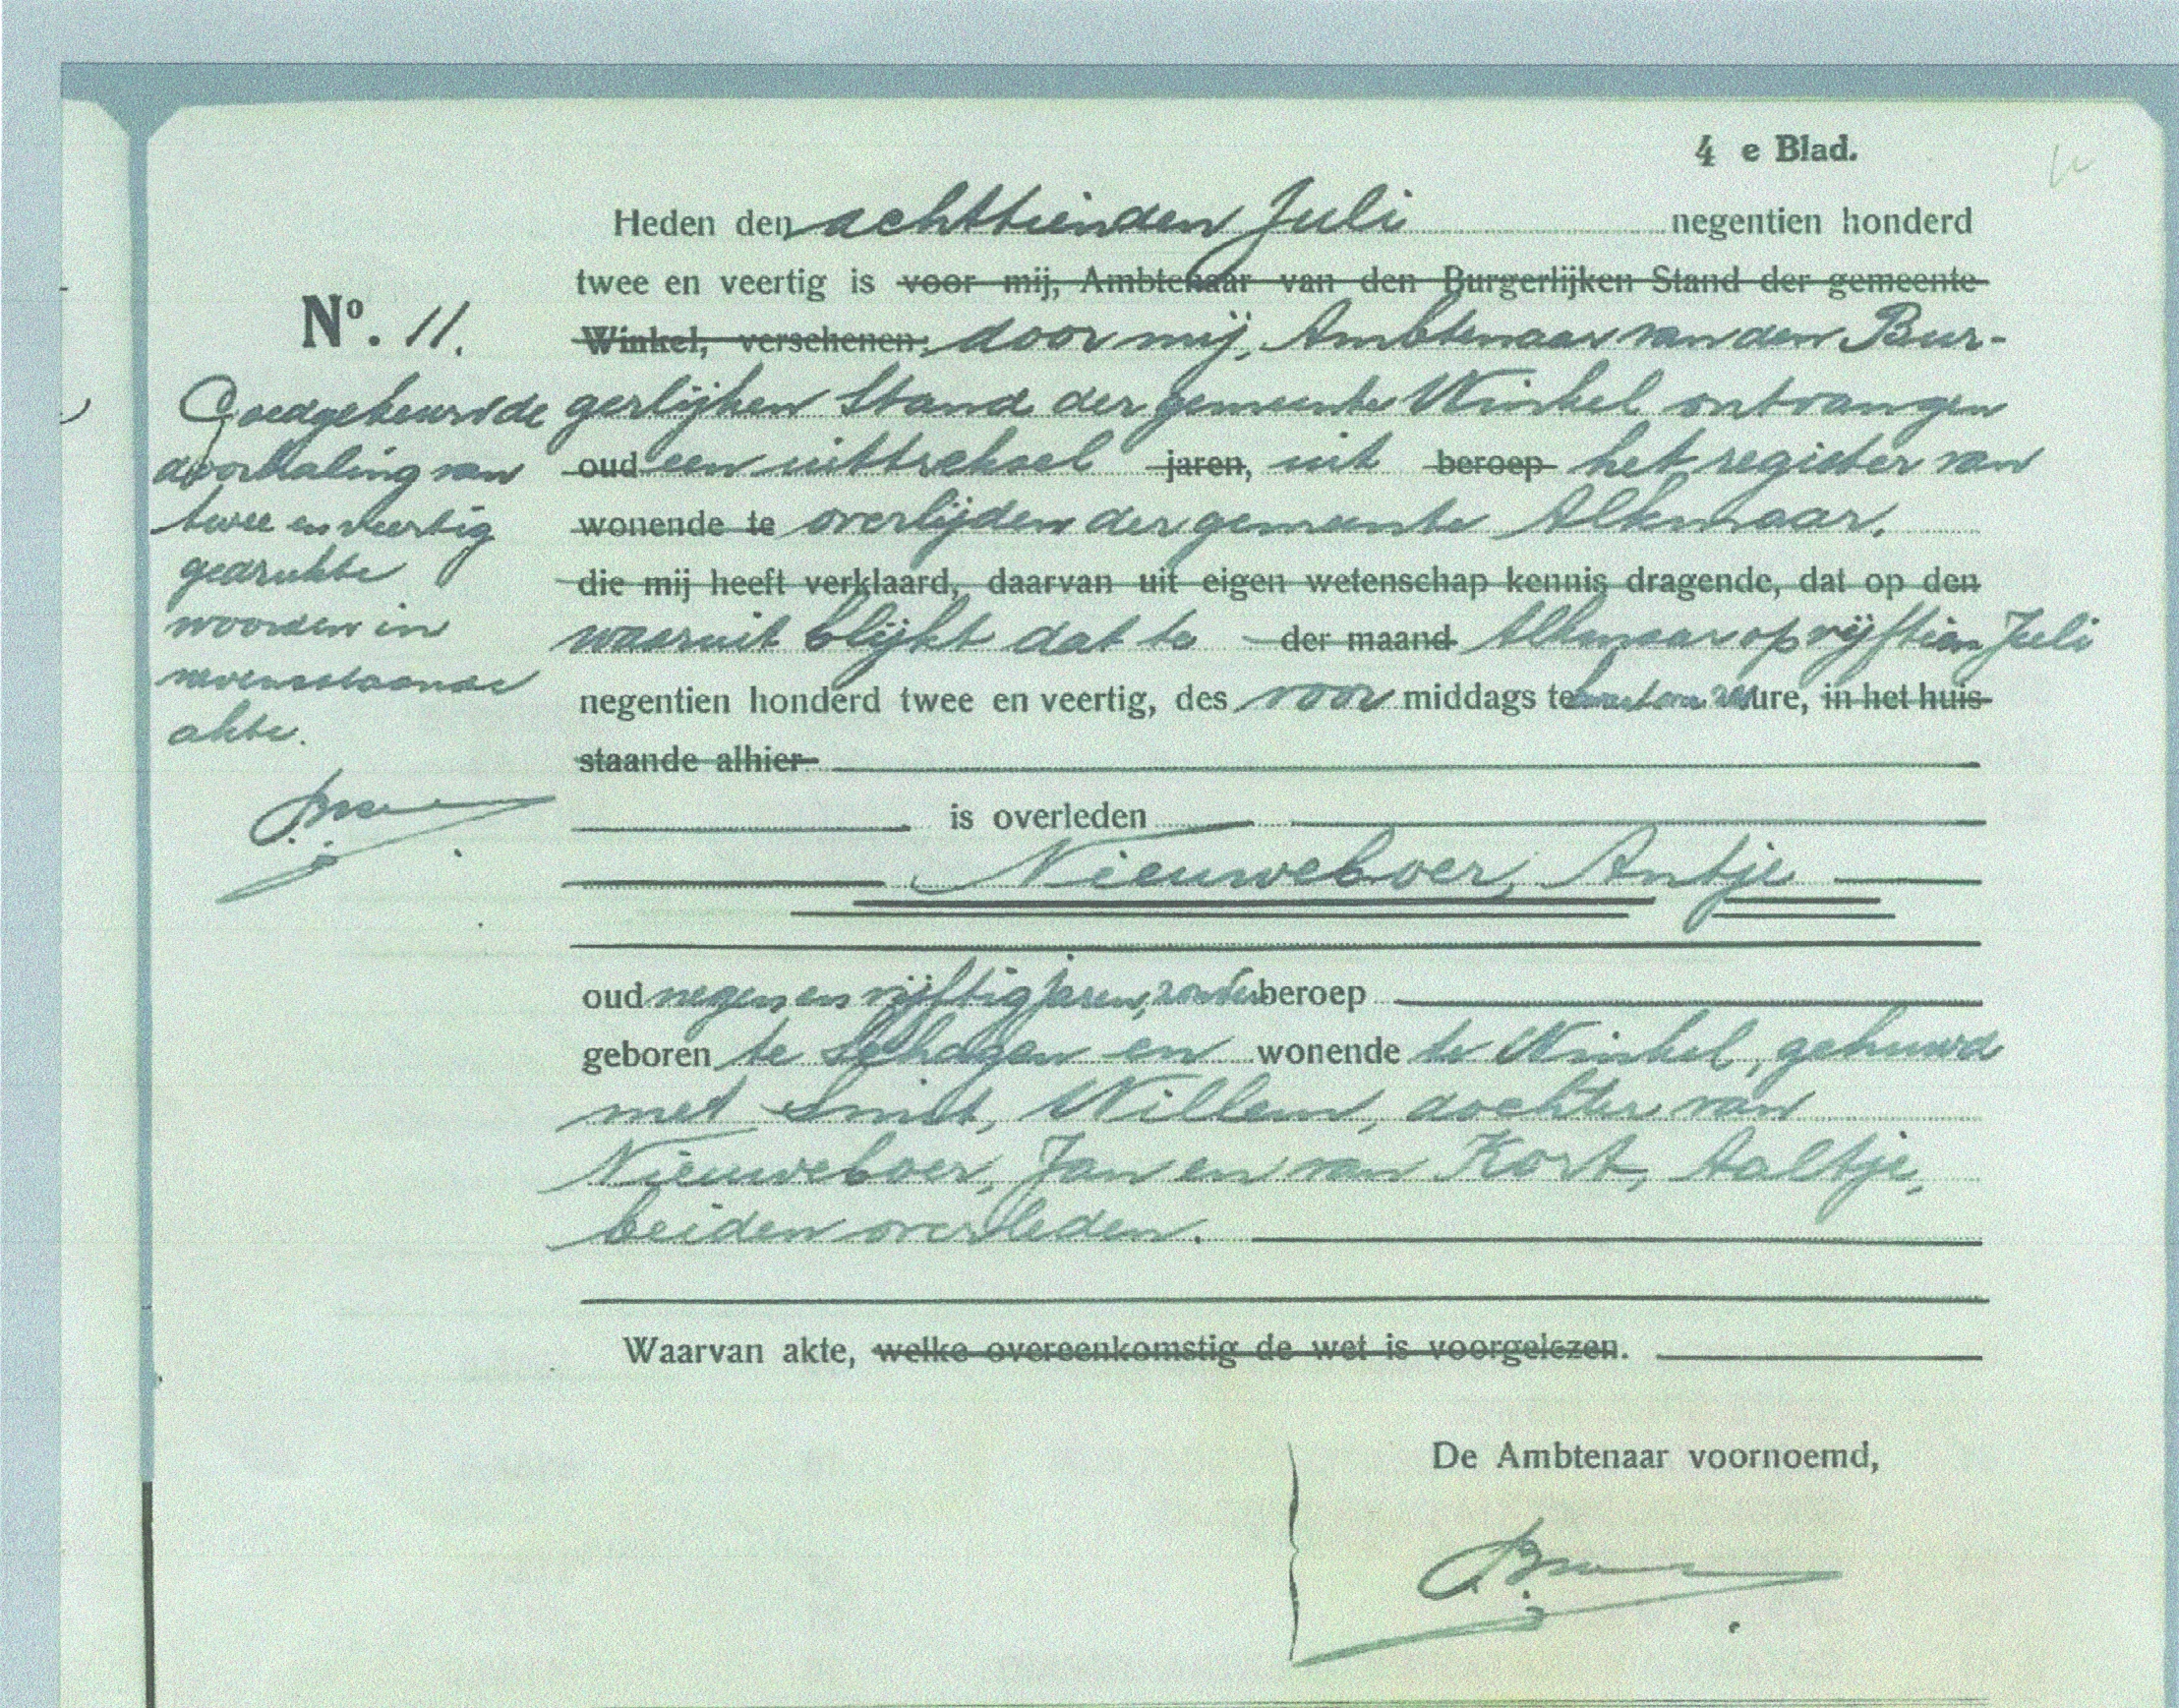 4 e Blad.
Heden den achttienden Juli negentien honderd
twee en veertig is voor mij, Ambtenaar van den Burgerlijken Stand der gemeente
Winkel, verschenen: door mij, Ambtenaar van den Bur-
gerlijken Stand der gemeente Winkel ontvangen
oud een uittreksel jaren, uit beroep het register van
wonende te overlijden der gemeente Alkmaar,
die mij heeft verklaard, daarvan uit eigen wetenschap kennis dragende, dat op den
waaruit blijkt dat te der maand Alkmaar op vijftien Juli
negentien honderd twee en veertig, des voor middags te ure, in het huis
staande alhier
is overleden
Nieuweboer, Antje
oud negen en vijftig jaren, zonder beroep
geboren te Schagen en wonende te Winkel, gehuwd
met Smit, Willem, dochter van
Nieuweboer, Jan en van Kort, Aaltje,
beiden overleden.
Waarvan akte, welke overeenkomstig de wet is voorgelezen.
De Ambtenaar voornoemd,
No. 11.
Goedgekeurd de
doorhaling van
twee en veertig
gedrukte
woorden in
nevenstaande
akte.